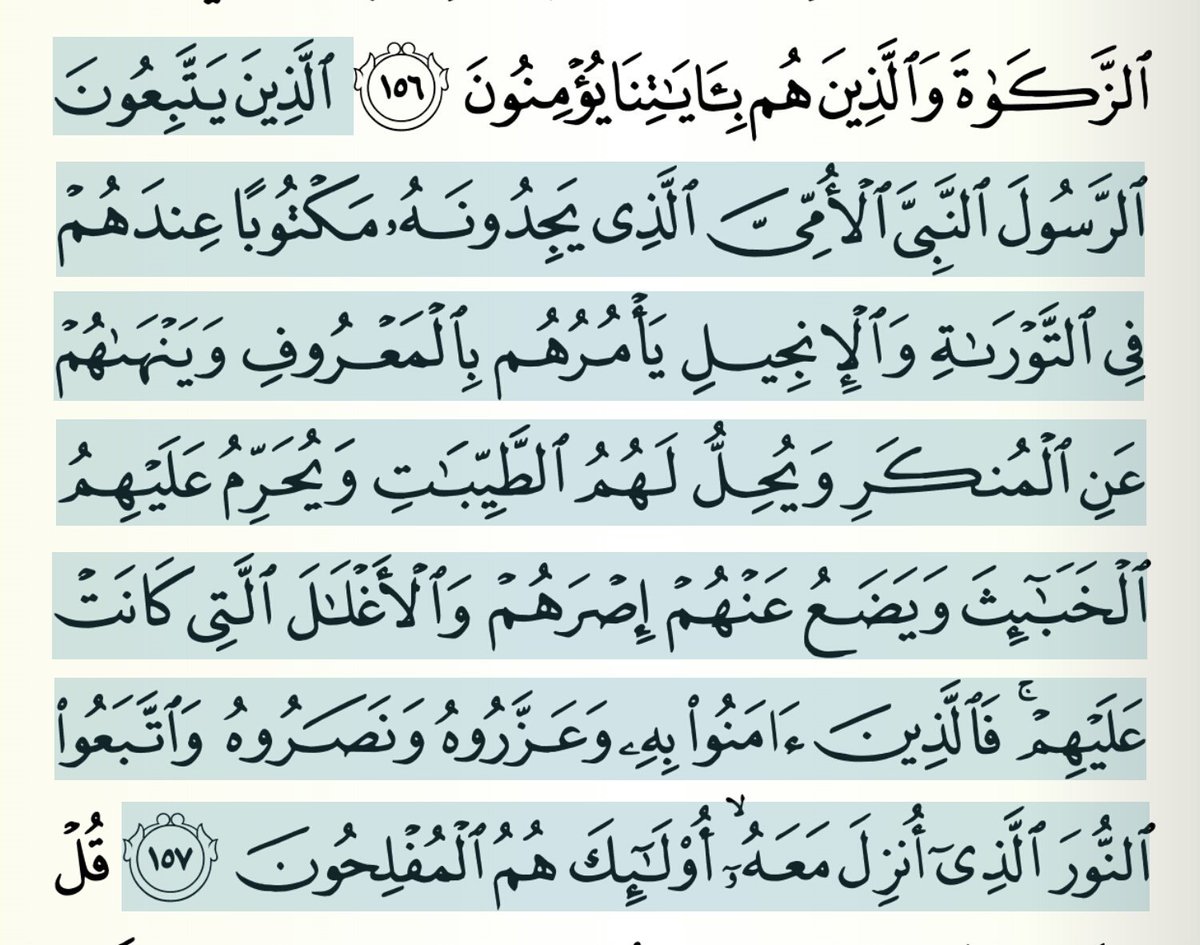 ٱلزَّكَوٰةَ وَٱلَّذِينَ هُم بِـَٔايَـٰتِنَا يُؤْمِنُونَ ١٥٦ ٱلَّذِينَ يَتَّبِعُونَ
ٱلرَّسُولَ ٱلنَّبِىَّ ٱلْأُمِّىَّ ٱلَّذِى يَجِدُونَهُۥ مَكْتُوبًا عِندَهُمْ
فِى ٱلتَّوْرَىٰةِ وَٱلْإِنجِيلِ يَأْمُرُهُم بِٱلْمَعْرُوفِ وَيَنْهَىٰهُمْ
عَنِ ٱلْمُنكَرِ وَيُحِلُّ لَهُمُ ٱلطَّيِّبَـٰتِ وَيُحَرِّمُ عَلَيْهِمُ
ٱلْخَبَـٰٓئِثَ وَيَضَعُ عَنْهُمْ إِصْرَهُمْ وَٱلْأَغْلَـٰلَ ٱلَّتِى كَانَتْ
عَلَيْهِمْ ۚ فَٱلَّذِينَ ءَامَنُوا۟ بِهِۦ وَعَزَّرُوهُ وَنَصَرُوهُ وَٱتَّبَعُوا۟
ٱلنُّورَ ٱلَّذِىٓ أُنزِلَ مَعَهُۥٓ ۙ أُو۟لَـٰٓئِكَ هُمُ ٱلْمُفْلِحُونَ ١٥٧ قُلْ